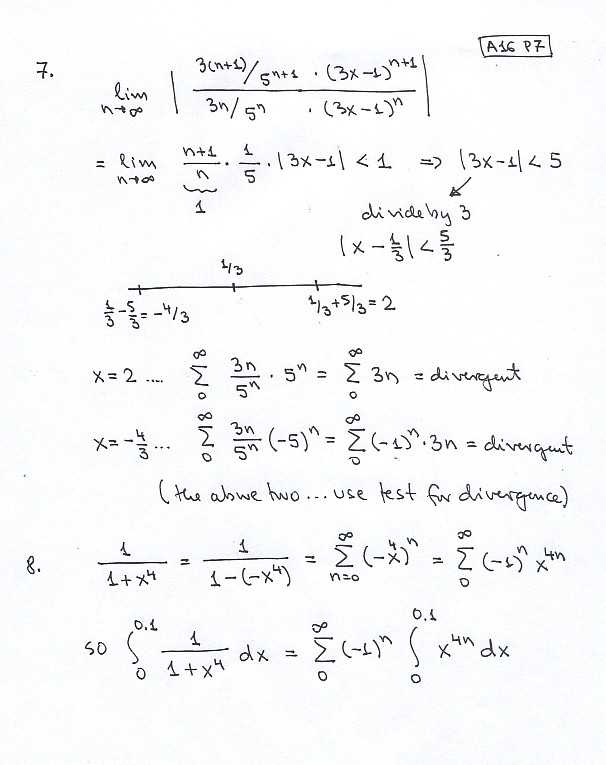 A16 P7
7. lim n→∞ | 3(n+1)/5^(n+1) · (3x-1)^(n+1) / 3n/5^n · (3x-1)^n |
= lim n→∞ (n+1)/n · 1/5 · |3x-1| < 1 ⇒ |3x-1| < 5
1
divide by 3
|x - 1/3| < 5/3
1/3
1/3 - 5/3 = -4/3 1/3 + 5/3 = 2
x = 2 .... ∑_0^∞ 3n/5^n · 5^n = ∑_0^∞ 3n = divergent
x = -4/3 ... ∑_0^∞ 3n/5^n (-5)^n = ∑_0^∞ (-1)^n · 3n = divergent
(the above two ... use test for divergence)
8. 1/(1+x^4) = 1/(1-(-x^4)) = ∑_{n=0}^∞ (-x^4)^n = ∑_0^∞ (-1)^n x^(4n)
so ∫_0^0.1 1/(1+x^4) dx = ∑_0^∞ (-1)^n ∫_0^0.1 x^(4n) dx